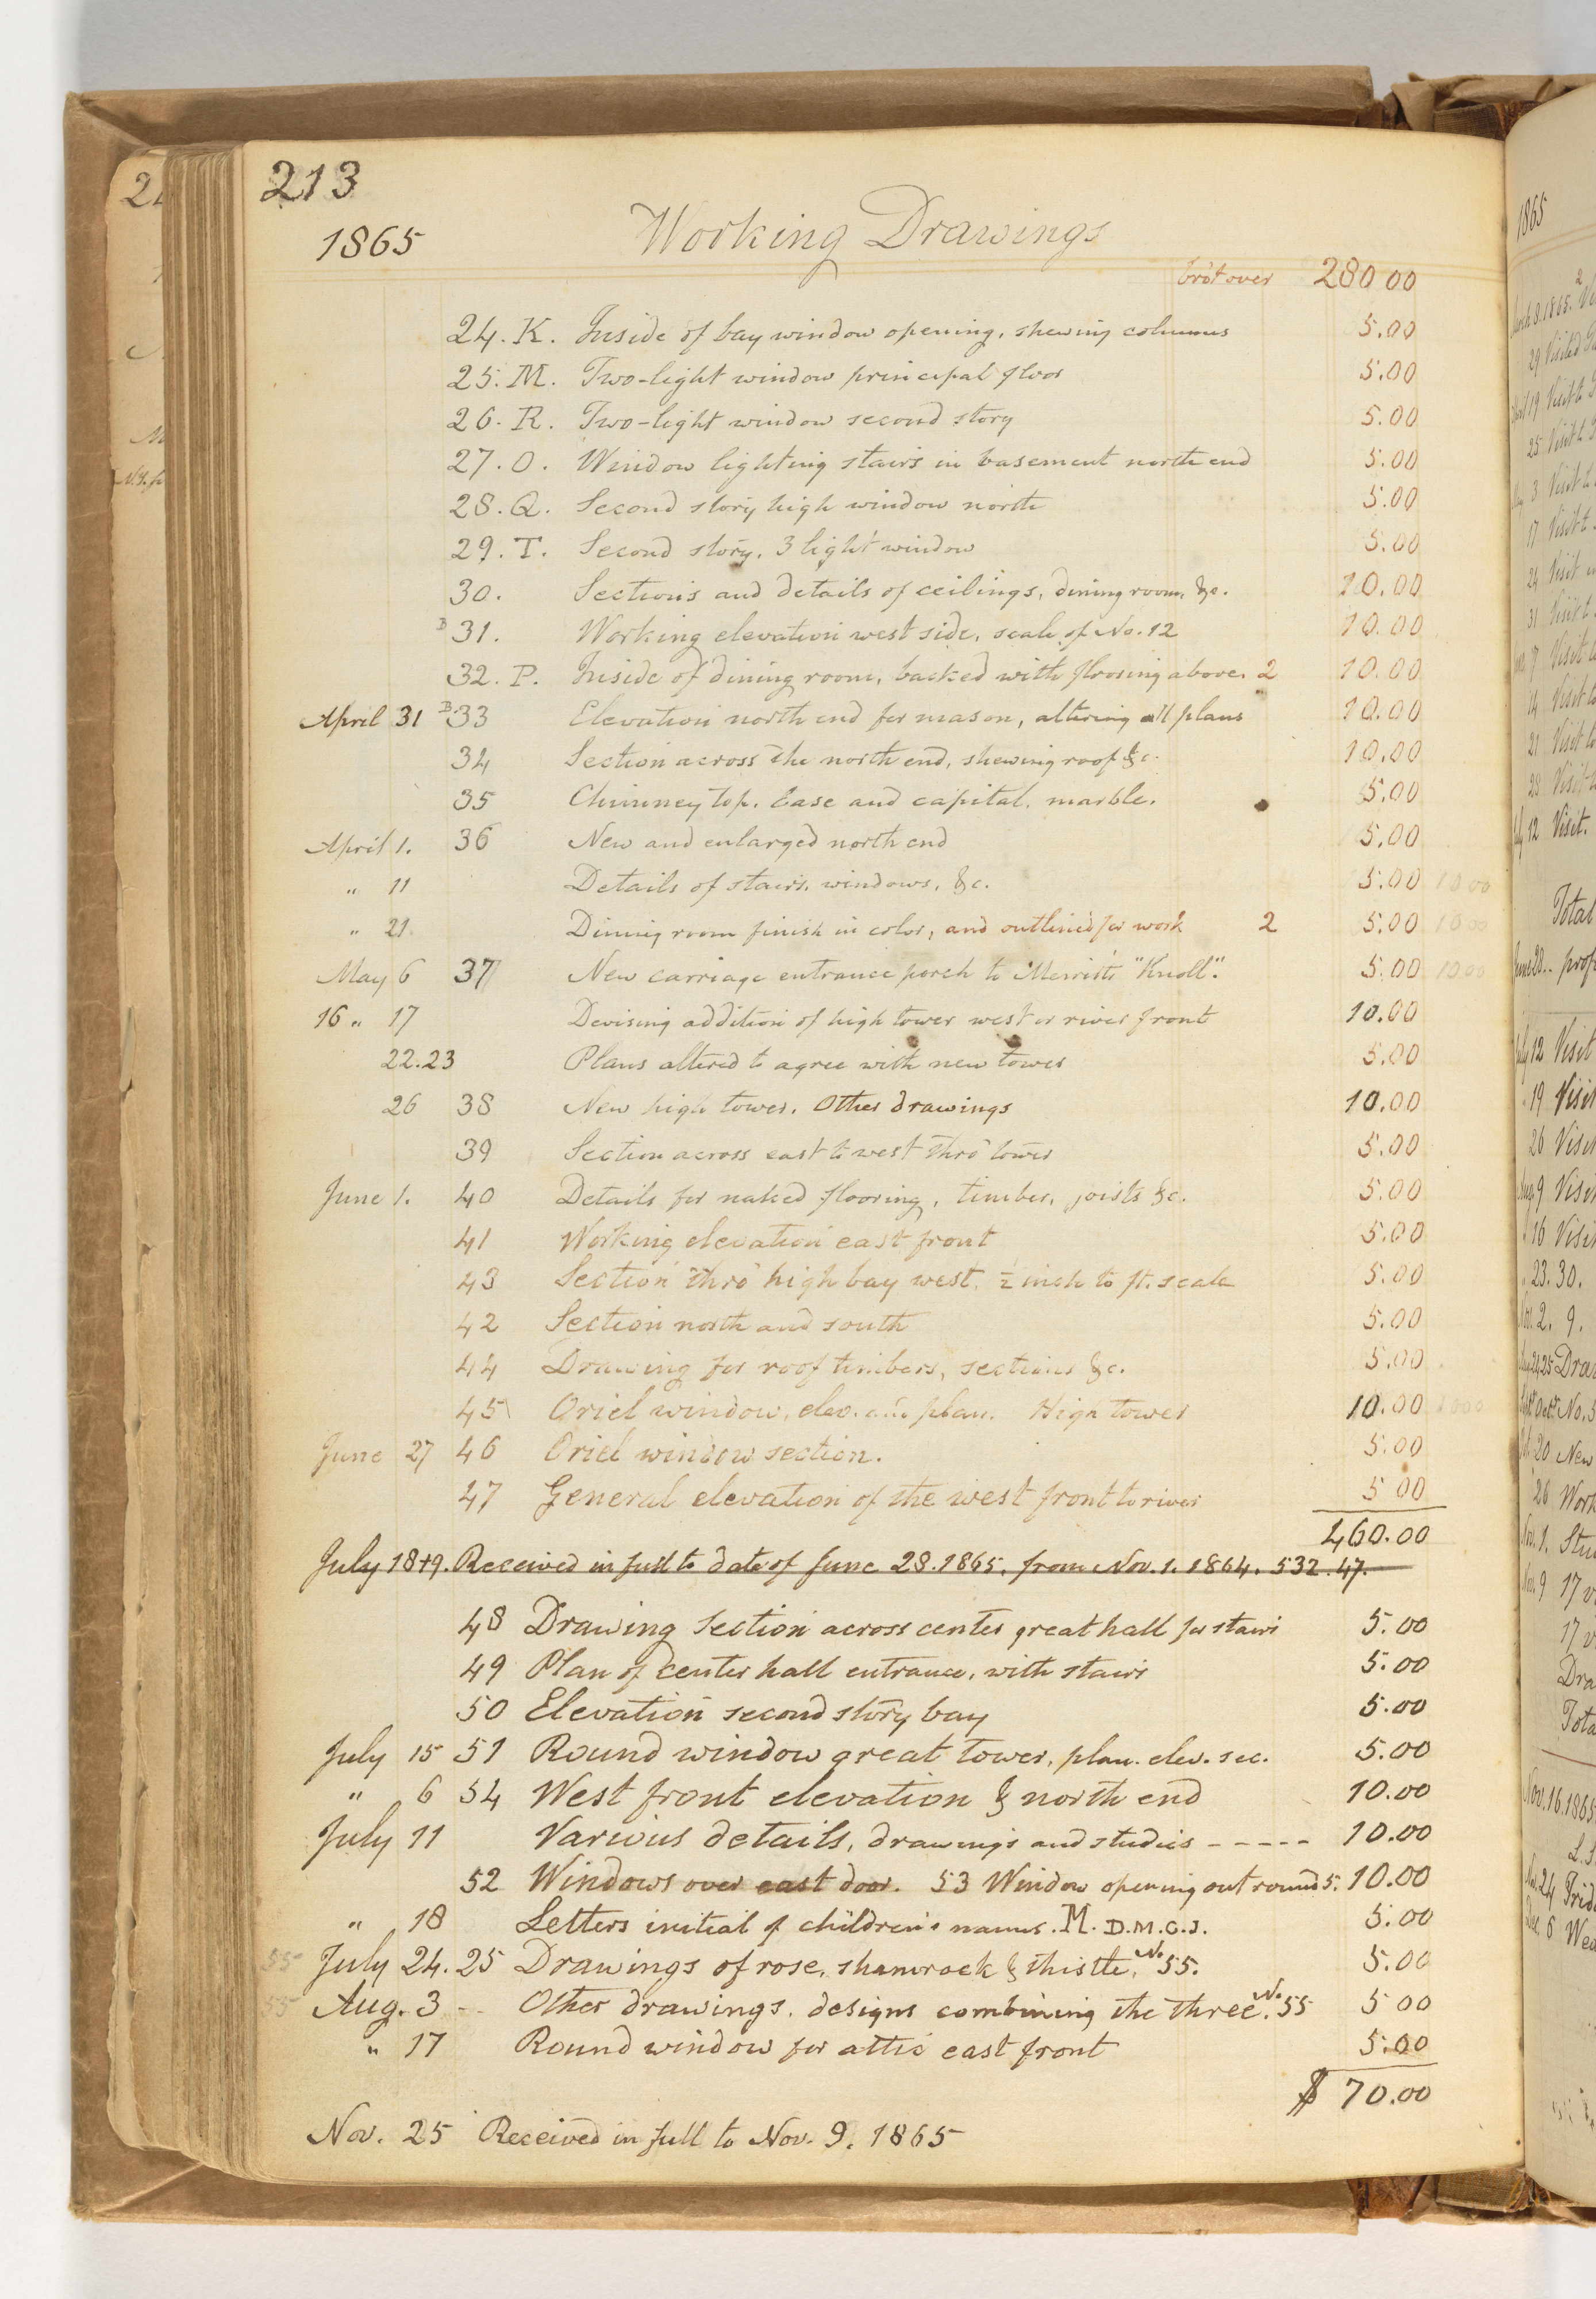 213
1865 Working Drawings
bro't over 280.00
24. K. Inside of bay window opening, shewing columns 5.00
25. M. Two-light window principal floor 5.00
26. R. Two-light window second story 5.00
27. O. Window lighting stairs in basement north end 5.00
28. Q. Second story high window north 5.00
29. T. Second story, 3 light window 5.00
30. Sections and details of ceilings, dining room, &c. 10.00
B 31. Working elevation west side, scale of No. 12 10.00
32. P. Inside of dining room, backed with flooring above. 2 10.00
April 31 B. 33 Elevation north end for mason, altering all plans 10.00
34 Section across the north end, shewing roof &c. 10.00
35 Chimney top, base and capital, marble. 5.00
April 1. 36 New and enlarged north end 5.00
" 11 Details of stairs, windows, &c. 5.00 10 00
" 21. Dining room finish in color, and outlined for work 2 5.00 10 00
May 6 37 New carriage entrance porch to Merritt's "Knoll". 5.00 10 00
16 " 17 Devising addition of high tower west or river front 10.00
22.23 Plans altered to agree with new tower 5.00
26 38 New high tower. Other drawings 10.00
39 Section across east to west thro' tower 5.00
June 1. 40 Details for naked flooring, timber, joists &c. 5.00
41 Working elevation east front 5.00
43 Section thro' high bay west, ½ inch to ft. scale 5.00
42 Section north and south 5.00
44 Drawing for roof timbers, sections &c. 5.00
45 Oriel window, elev. and plan. High tower 10.00 10 00
June 27 46 Oriel window section. 5.00
47 General elevation of the west front to river 5 00
460.00
July 18+9. Received in full to date of June 28. 1865, from Nov. 1. 1864. 532.47.
48 Drawing section across center great hall for stairs 5.00
49 Plan of center hall entrance, with stairs 5.00
50 Elevation second story bay 5.00
July 15 51 Round window great tower, plan. elev. sec. 5.00
" 6 54 West front elevation & north end 10.00
July 11 Various details, drawings and studies - - - - - 10.00
52 Windows over east door. 53 Window opening out round 5. 10.00
" 18 Letters initial of children's names. M. D.M.G.J. 5.00
55 July 24.25 Drawings of rose, shamrock & thistle, No 55. 5.00
55 Aug. 3 - - Other drawings, designs combining the three. No 55 5 00
" 17 Round window for attic east front 5.00
$ 70.00
Nov. 25 Received in full to Nov. 9. 1865